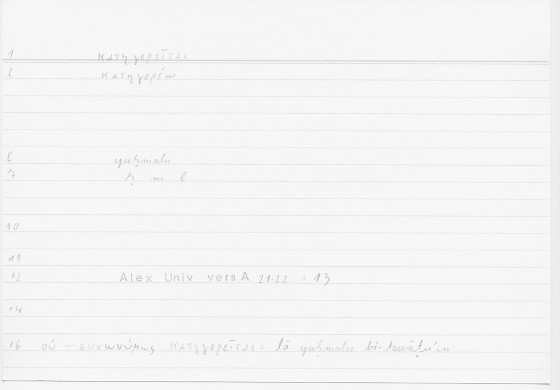 1 κατηγορεῖται
2 κατηγορέω
6 yuḥmalu
7 ḥ m l
10
11
12 Alex Univ vers A 21.22 = 13
14
16 οὐ – συνωνύμως κατηγορεῖται = lā yuḥmalu bi-tawāṭuʾin